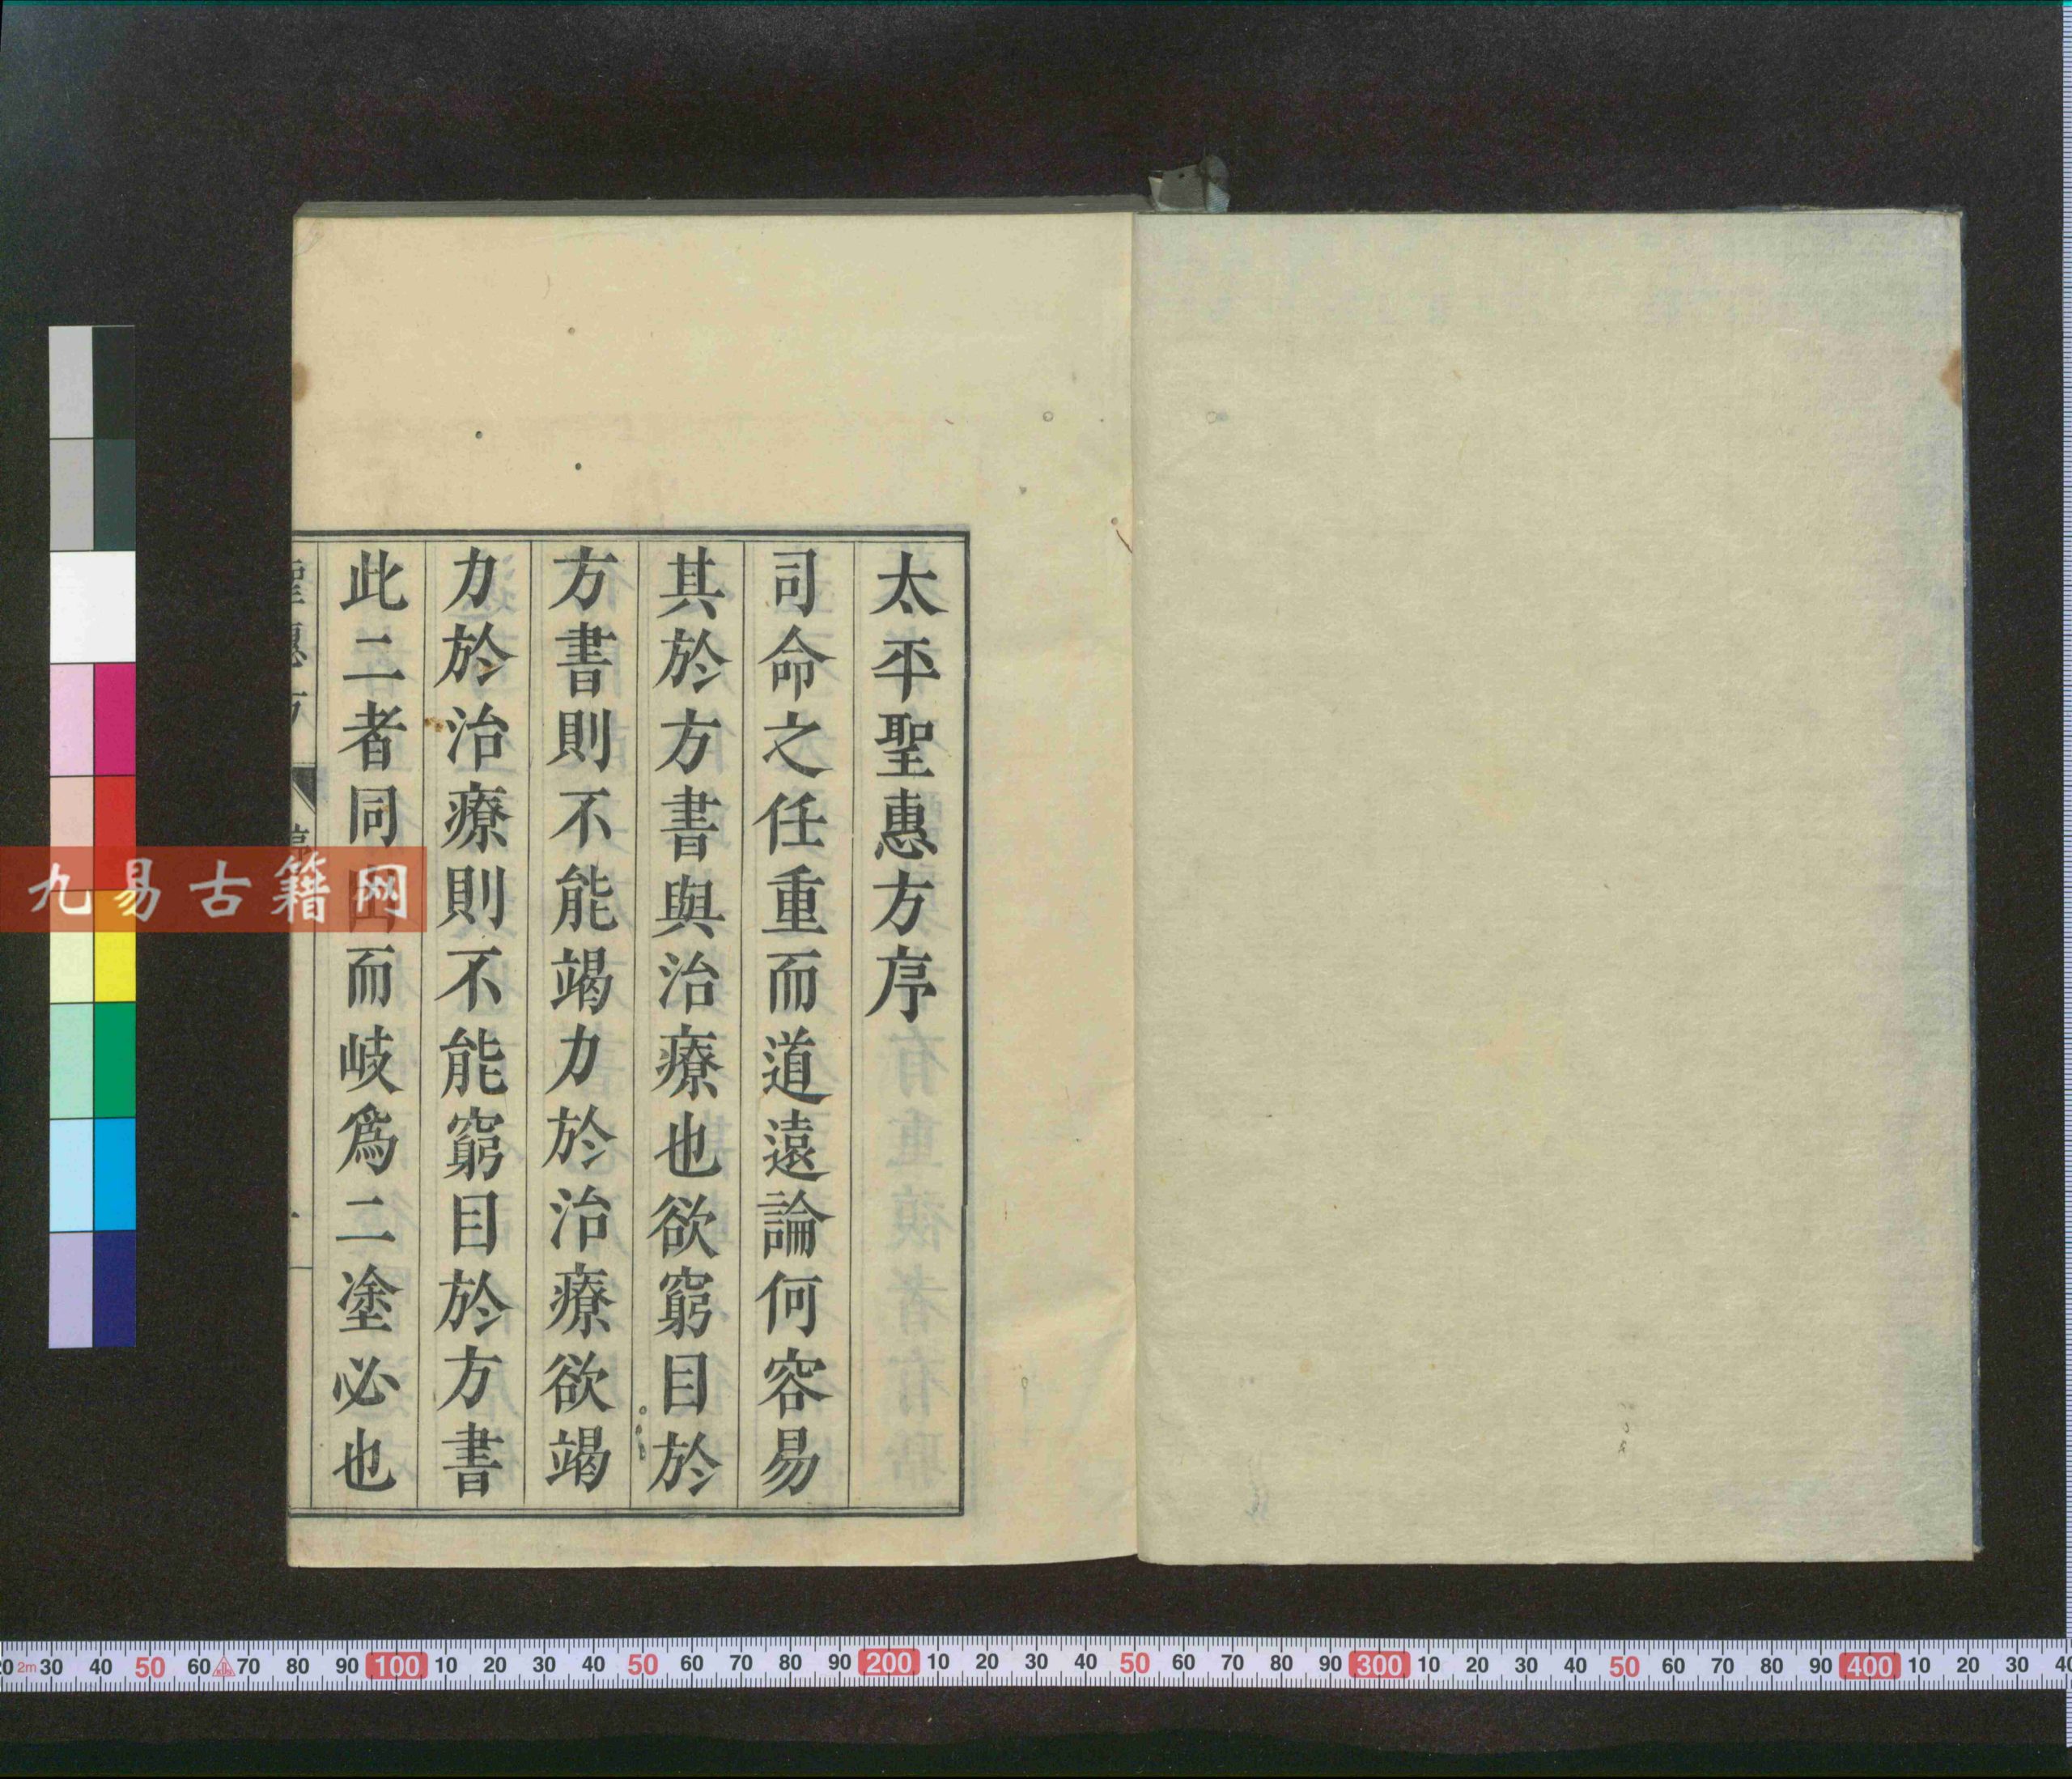 太平聖惠方序
司命之任重而道遠論何容易
其於方書與治療也欲窮目於
方書則不能竭力於治療欲竭
力於治療則不能窮目於方書
此二者同出而岐爲二塗必也
聖惠方
序
九易古籍网
20 2m 30 40 50 60 70 80 90 100 10 20 30 40 50 60 70 80 90 200 10 20 30 40 50 60 70 80 90 300 10 20 30 40 50 60 70 80 90 400 10 20 30 40